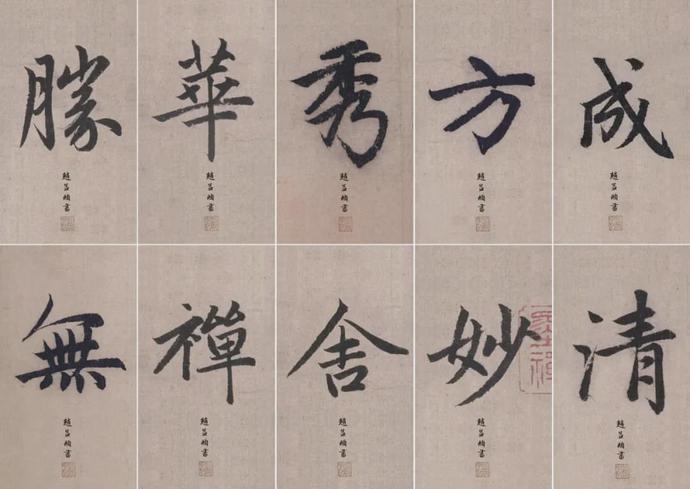 勝
趙孟頫書
華
趙孟頫書
秀
趙孟頫書
方
趙孟頫書
成
趙孟頫書
無
趙孟頫書
禪
趙孟頫書
舍
趙孟頫書
妙
趙孟頫書
清
趙孟頫書